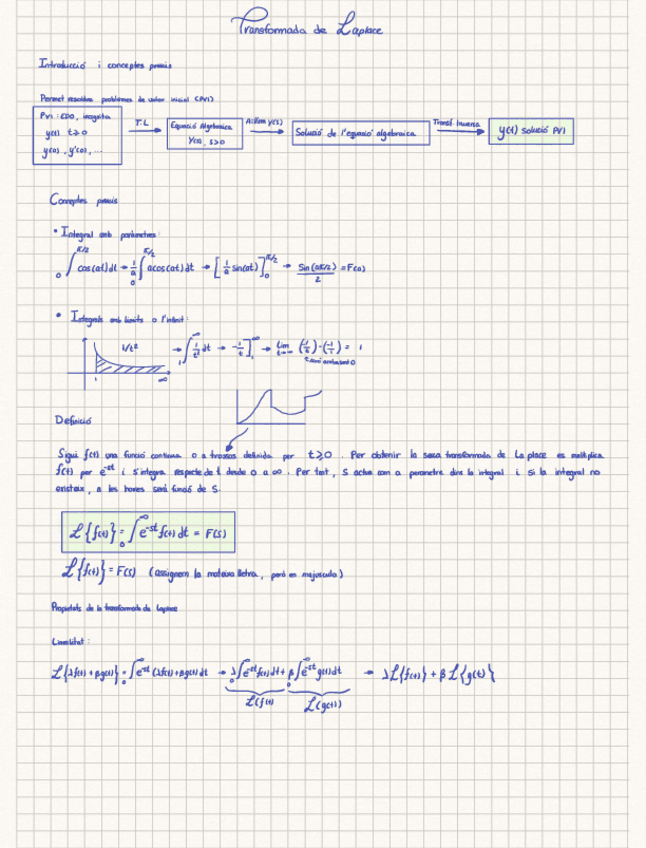 Transformada de Laplace
Introducció i conceptes previs
Permet resoldre problemes de valor inicial (PVI)
PVI: EDO, incognita
y(t) t≥0
y(0), y'(0), ...
T.L
Equació Algebraica
Y(s), s>0
Aïllem Y(s)
Solució de l'equació algebraica
Transf. Inversa
y(t) solució PVI
Conceptes previs
• Integral amb paràmetres:
∫₀^{π/2} cos(at)dt → 1/a ∫₀^{π/2} a cos(at)dt → [1/a sin(at)]₀^{π/2} → Sin(aπ/2)/2 = F(a)
• Integrals amb límits a l'infinit:
1/t²
1
∞
→ ∫₁^∞ 1/t² dt → -1/t]₁^∞ → lim t→∞ (1/t)-(-1/1) = 1
Definició
Sigui f(t) una funció contínua o a trossos definida per t≥0. Per obtenir la seva transformada de La place es multiplica
f(t) per e^{-st} i s'integra respecte de t desde 0 a ∞. Per tant, S actua com a parametre dins la integral i si la integral no
existeix, a les hores serà funció de S.
ℒ{f(t)} = ∫₀^∞ e^{-st} f(t) dt = F(s)
ℒ{f(t)} = F(s) (assignem la mateixa lletra, però en majuscula)
Propietats de la transformada de Laplace
Linealitat:
ℒ{λf(t)+βg(t)} = ∫₀^∞ e^{-st} (λf(t)+βg(t))dt → λ∫₀^∞ e^{-st} f(t)dt + β∫₀^∞ e^{-st} g(t)dt → λℒ{f(t)} + βℒ{g(t)}
ℒ(f(t)
ℒ(g(t))